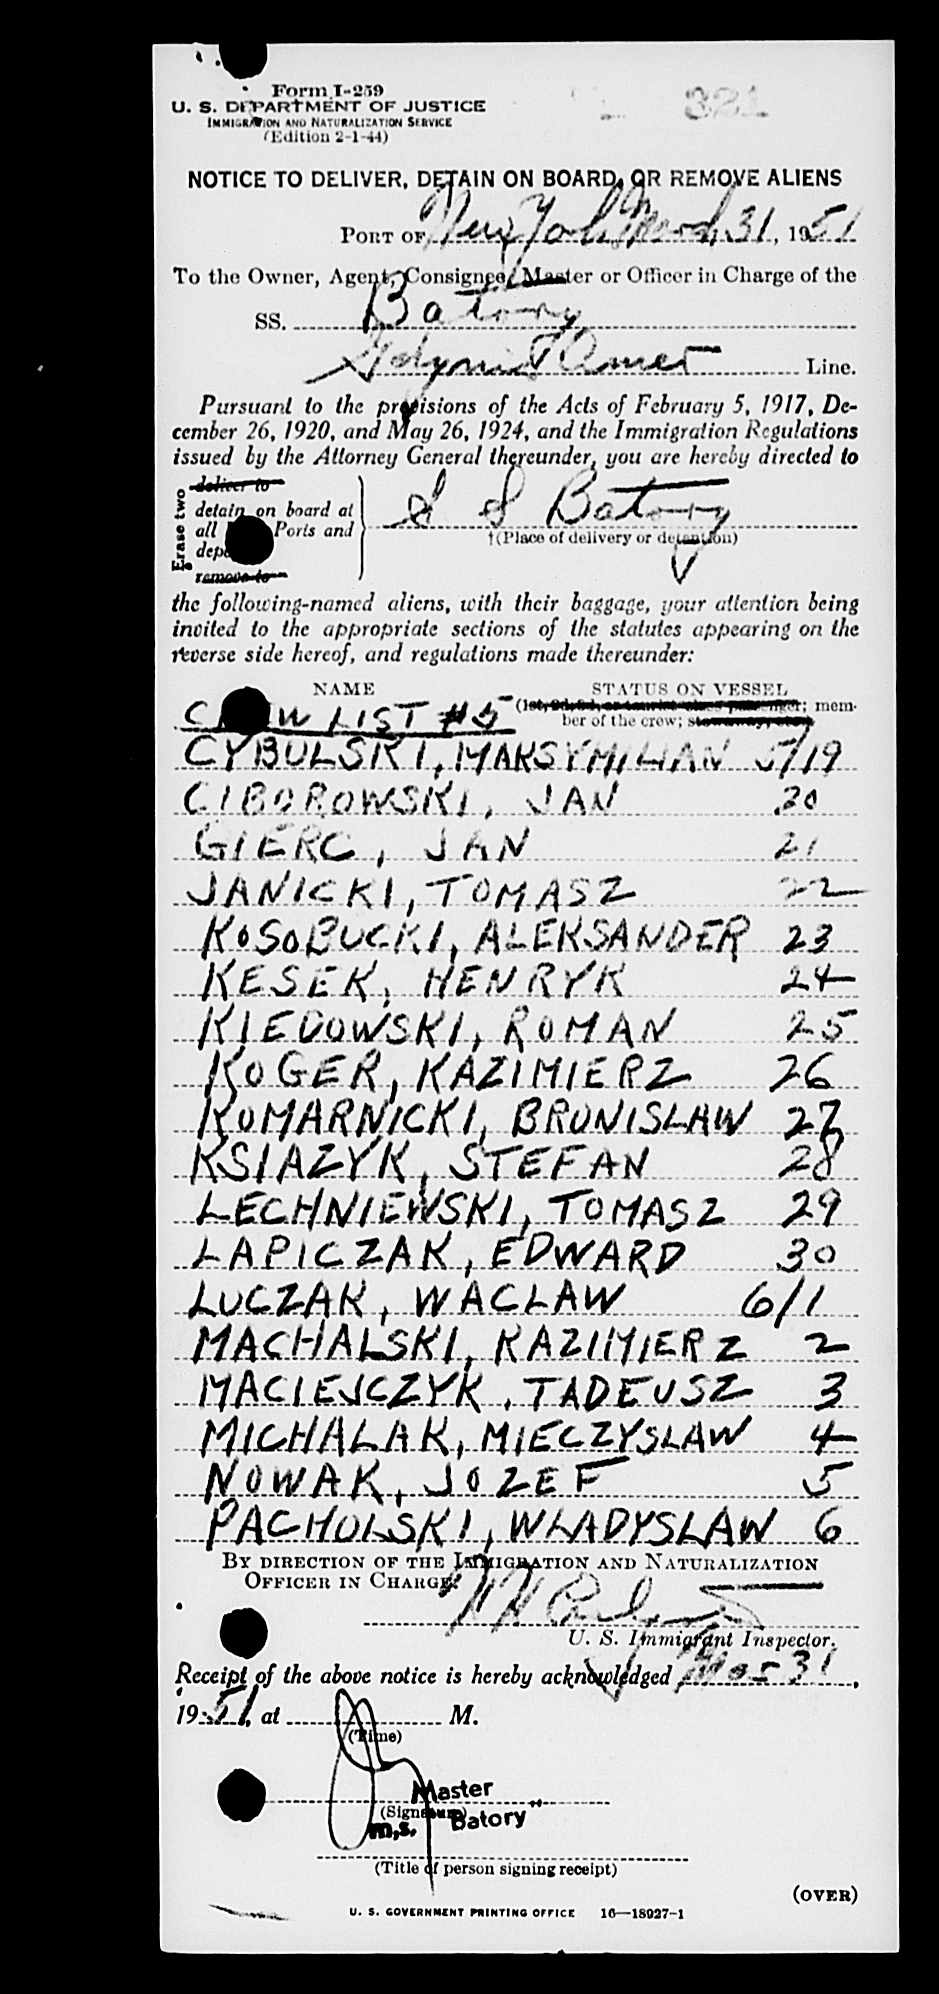 Form I-259
321
U. S. DEPARTMENT OF JUSTICE
IMMIGRATION AND NATURALIZATION SERVICE
(Edition 2-1-44)
NOTICE TO DELIVER, DETAIN ON BOARD, OR REMOVE ALIENS
PORT OF New York March 31, 1951
To the Owner, Agent, Consignee, Master or Officer in Charge of the
SS. Batory
Gdynia Amer Line.
Pursuant to the provisions of the Acts of February 5, 1917, De-
cember 26, 1920, and May 26, 1924, and the Immigration Regulations
issued by the Attorney General thereunder, you are hereby directed to
Erase two
deliver to
detain on board at
all Ports and
remove to
S S Batory
†(Place of delivery or detention)
the following-named aliens, with their baggage, your attention being
invited to the appropriate sections of the statutes appearing on the
reverse side hereof, and regulations made thereunder:
NAME STATUS ON VESSEL
(1st, 2d, 3d, or tourist class passenger; mem-
ber of the crew; stowaway, etc.)
CREW LIST #5
CYBULSKI, MAKSYMILIAN 5/19
CIBOROWSKI, JAN 20
GIERC, JAN 21
JANICKI, TOMASZ 22
KOSOBUCKI, ALEKSANDER 23
KESEK, HENRYK 24
KIEDOWSKI, ROMAN 25
KOGER, KAZIMIERZ 26
KOMARNICKI, BRONISLAW 27
KSIAZYK, STEFAN 28
LECHNIEWSKI, TOMASZ 29
LAPICZAK, EDWARD 30
LUCZAK, WACLAW 6/1
MACHALSKI, KAZIMIERZ 2
MACIEJCZYK, TADEUSZ 3
MICHALAK, MIECZYSLAW 4
NOWAK, JOZEF 5
PACHOLSKI, WLADYSLAW 6
BY DIRECTION OF THE IMMIGRATION AND NATURALIZATION
OFFICER IN CHARGE.
U. S. Immigrant Inspector.
Receipt of the above notice is hereby acknowledged Mar 31,
1951, at M.
(Time)
Master
(Signature)
m,s. Batory"
(Title of person signing receipt)
(OVER)
U. S. GOVERNMENT PRINTING OFFICE 16—18927-1